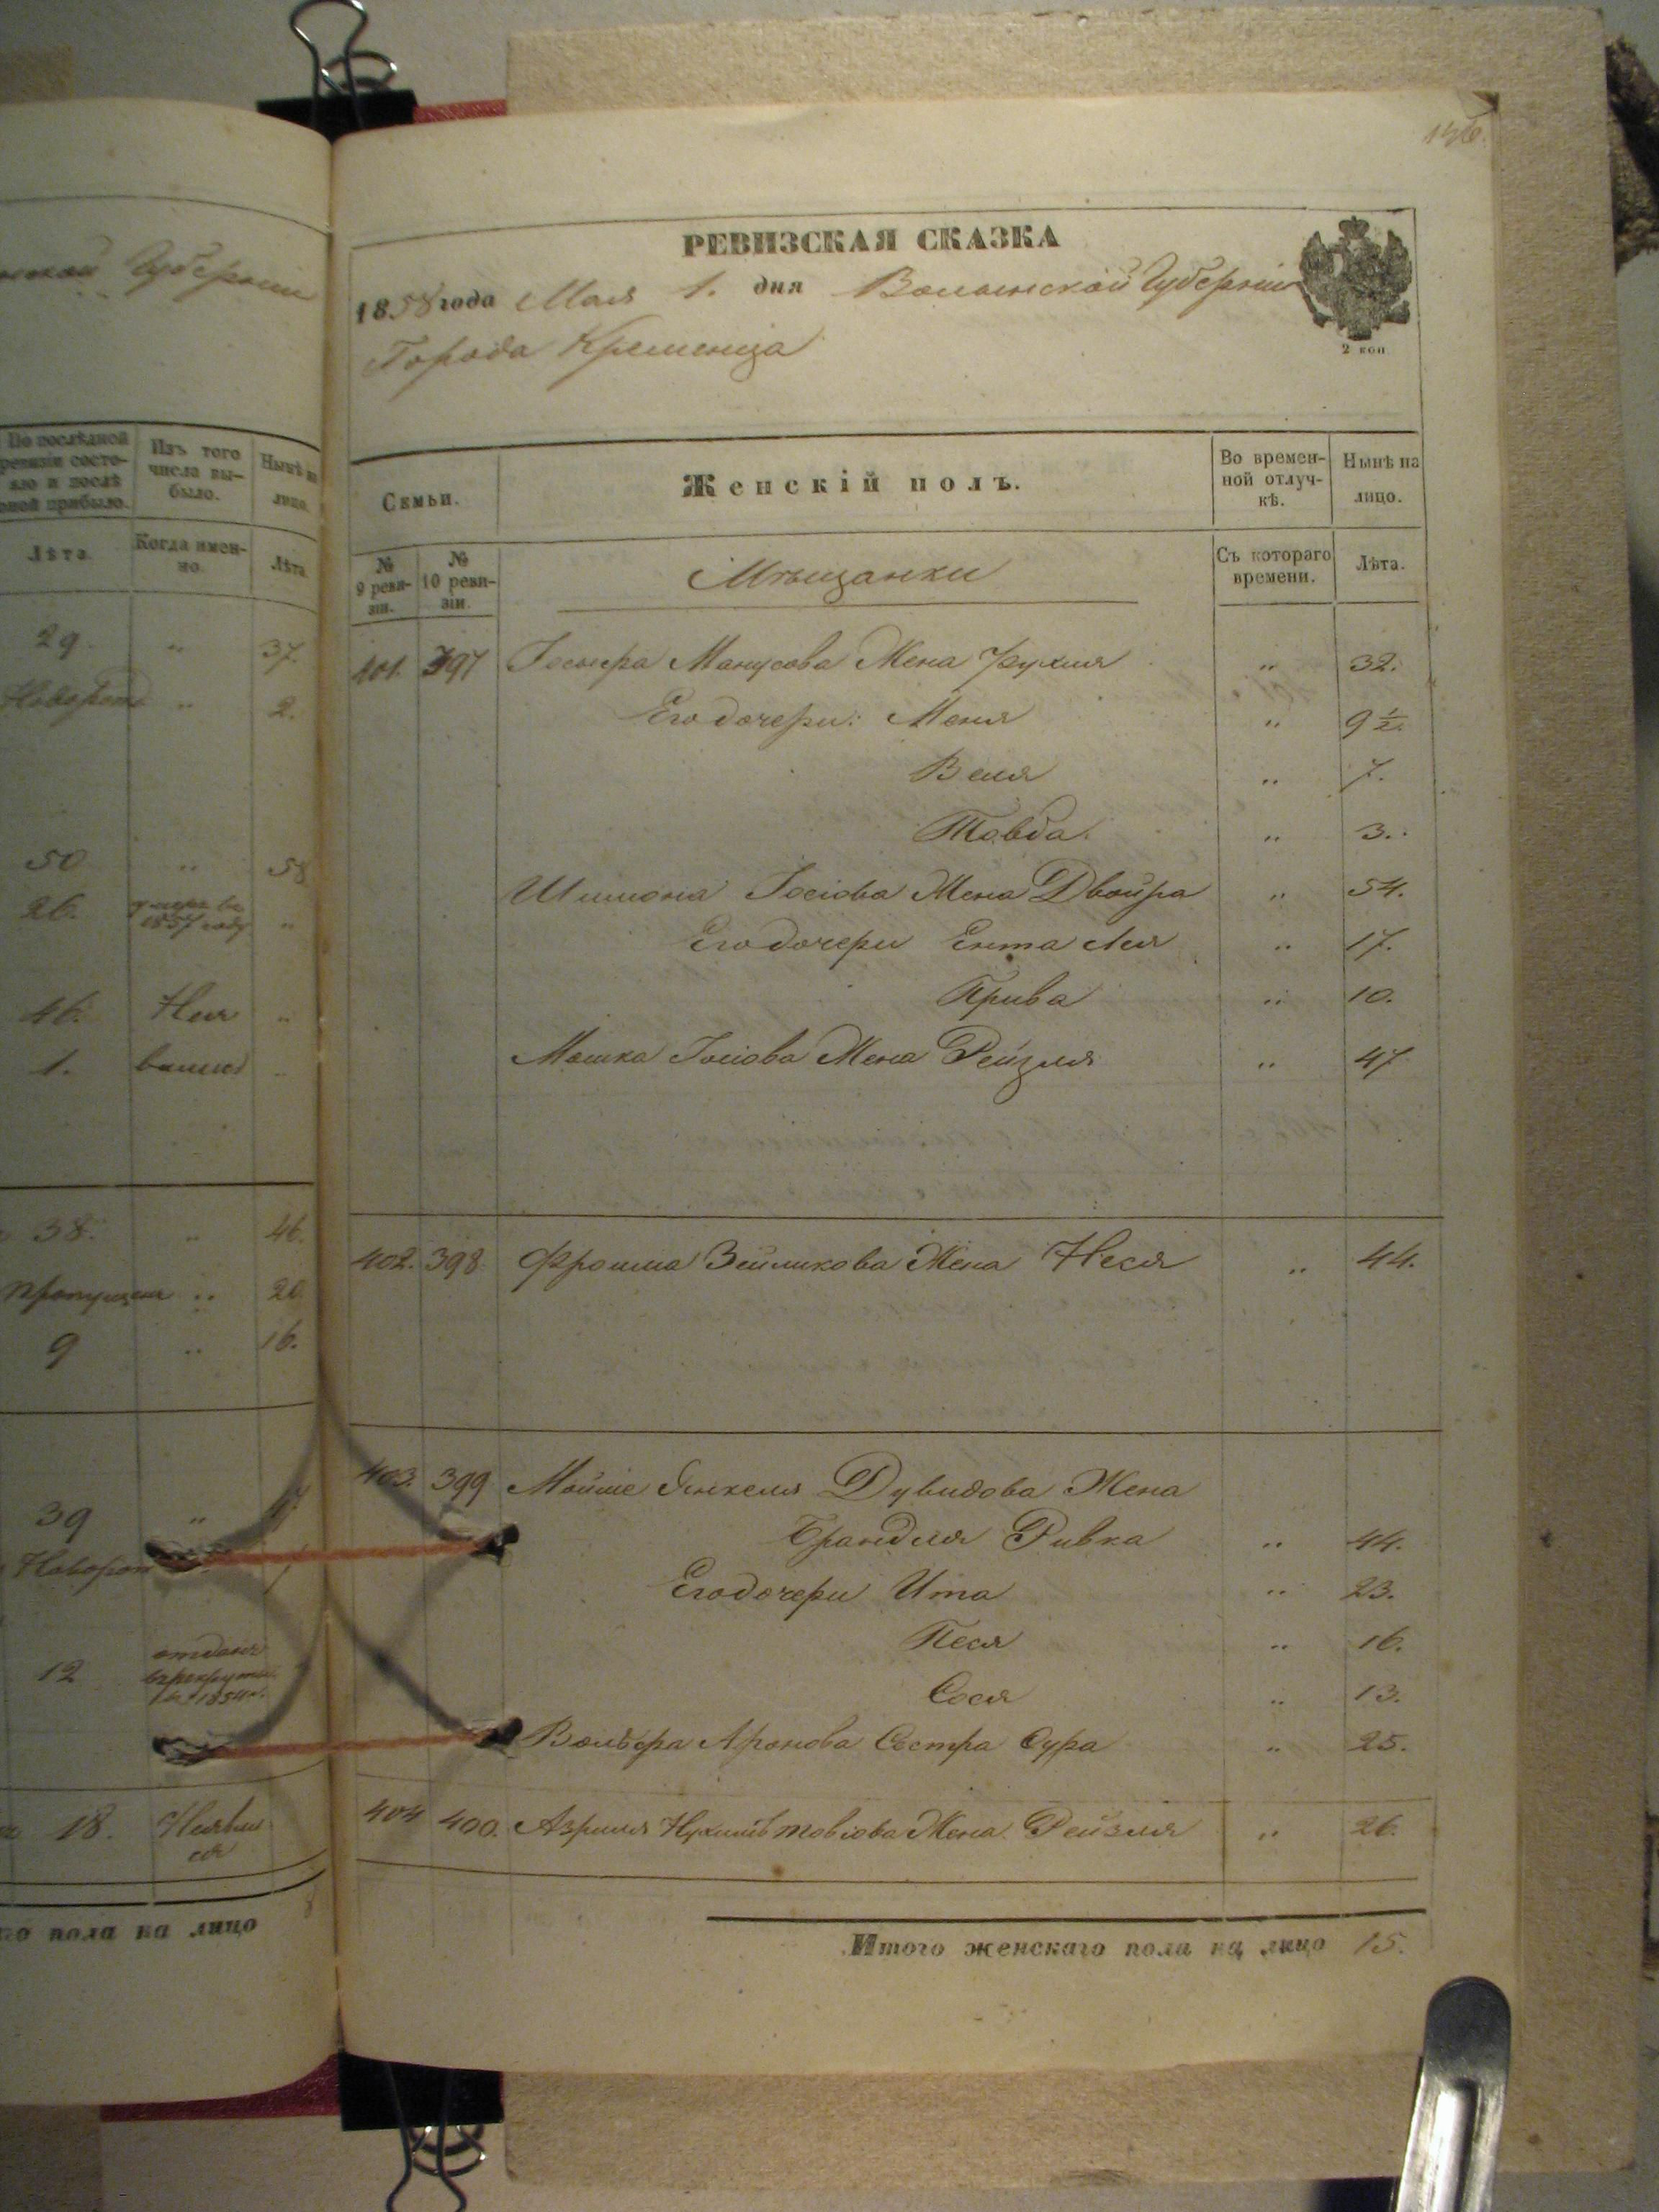 нской Губернии
По послѣдной ревизіи состо-
яло и послѣ
оной прибыло.
Изъ того
число вы-
было.
Нынѣ на
лицо
Лѣта
Когда имен-
но
Лѣта
29. " 37.
Новорож " 2.
50 " 58
26. умеръ въ
1857 году "
46. Нея "
1. вились "
38. " 46.
пропущенъ " 20
9 " 16.
39 "
Новорож
12 отданъ
въ рекруты
18. Неявил
ся
го пола на лицо
РЕВИЗСКАЯ СКАЗКА
1858 года Мая 1. дня Волынской Губерніи
2 коп
Города Кременца
Семьи.
Женскій полъ.
Во времен-
ной отлуч-
кѣ.
Нынѣ на
лицо.
№
9 реви-
зіи.
№
10 реви-
зіи.
Мѣщанки
Съ котораго
времени.
Лѣта.
401. 397 Манусова Жена Рухля " 32.
Его дочери: Меня " 9½.
Веля " 7.
Товба. " 3.
Шимона Іосіова Жена Двойра " 54.
Его дочери Ента Лея " 17.
Прива " 10.
Мошка Іосіова Жена Рейзля " 47
402. 398. Фроима Зейликова Жена Неся " 44.
403. 399 Мойше Янкеля Дувидова Жена
Брандля Ривка " 44.
Его дочери Ита " 23.
Песя " 16.
Сося " 13.
Вольфа Аронова Сестра Сура " 25.
404 400. Азриля Жена Рейзля " 26.
Итого женскаго пола на лицо 15.